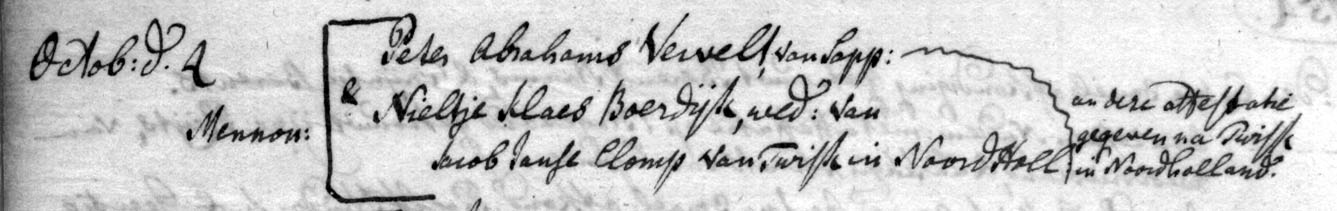 Octob: d. 4
Mennon:
Peter Abrahams Verwelt, van Sapp:
& Nieltje Klaes Boerdijk, wed: van
Jacob Janse Clomp van Twisk in Noord Holl.
andere attestatie
gegeven na Twisk
in Noordholland.